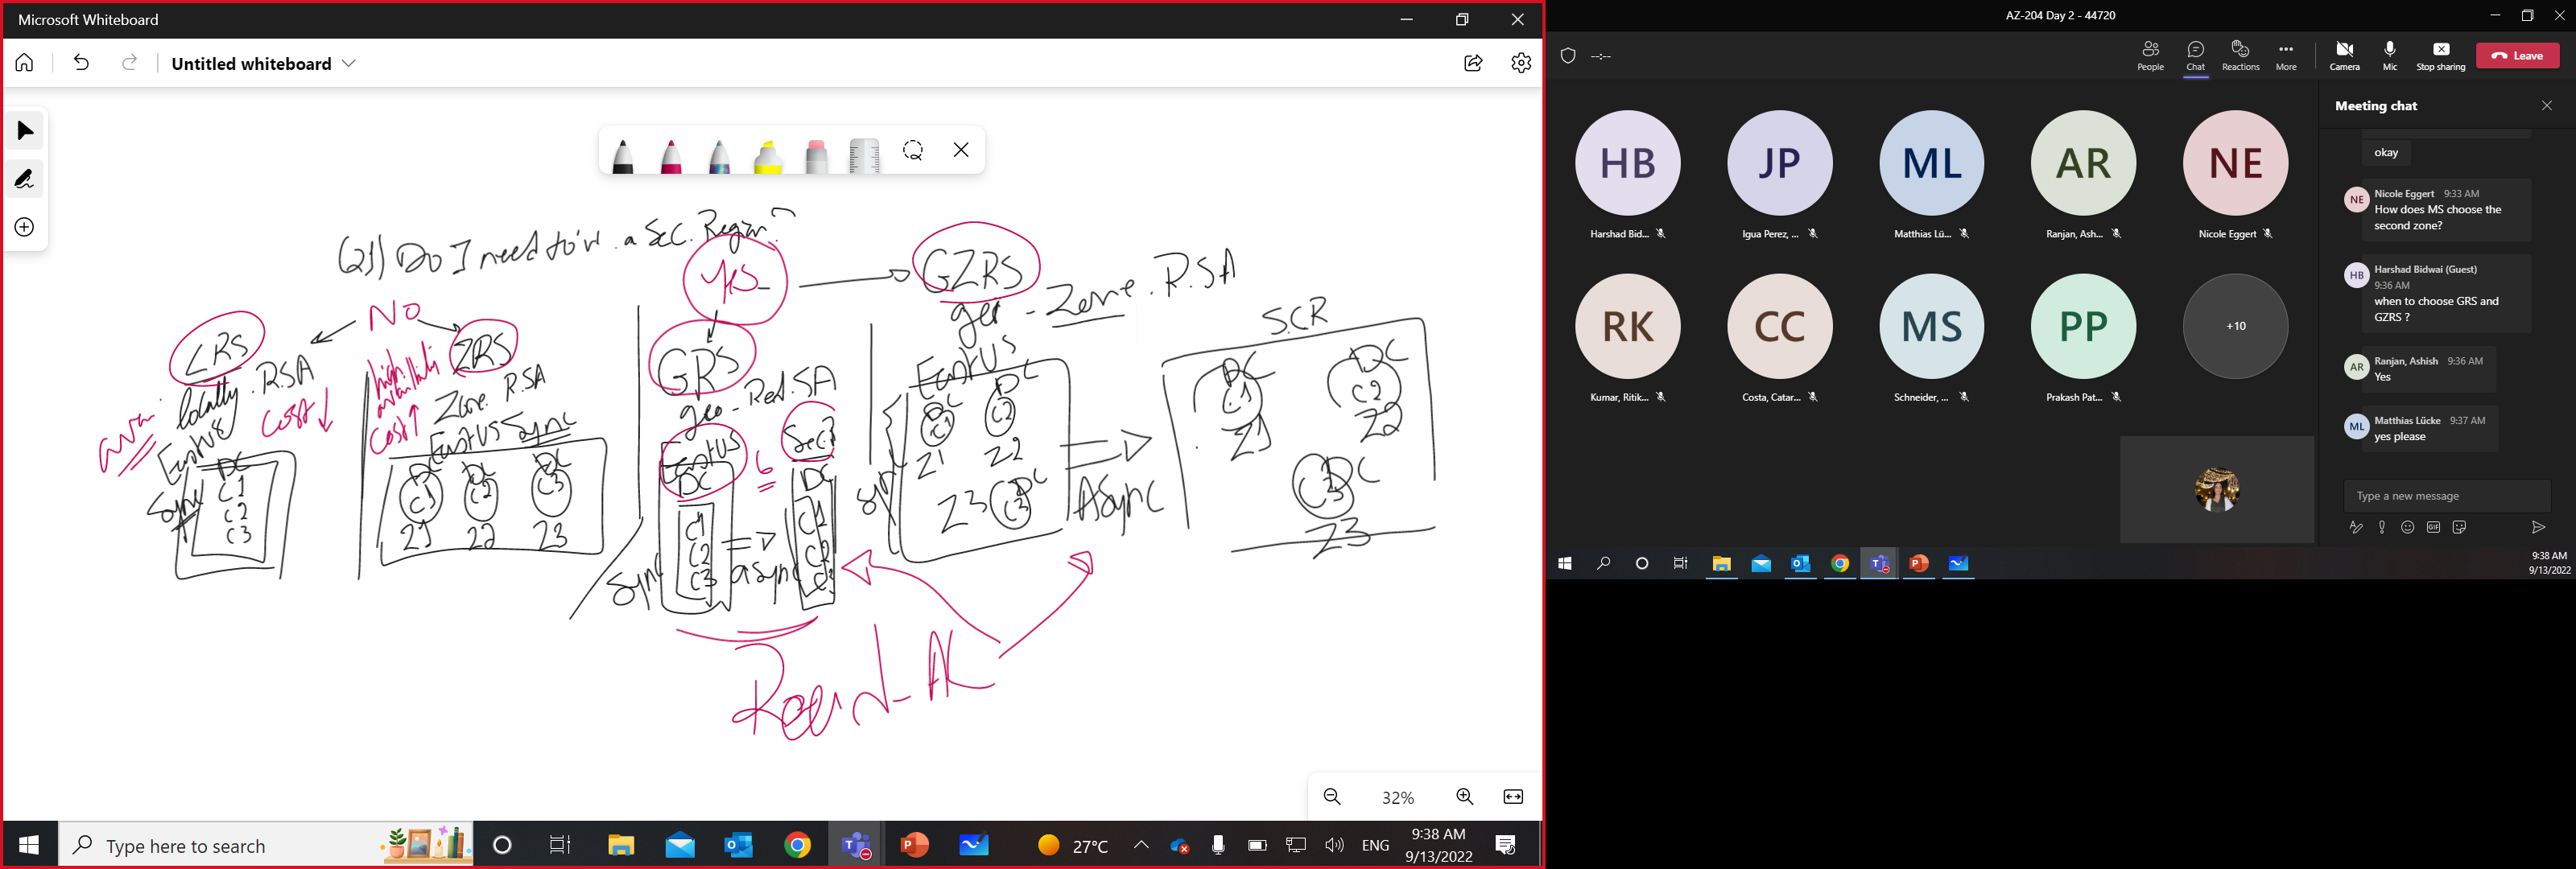 Microsoft Whiteboard
Untitled whiteboard
(Q1) Do I need to a Sec. Region?
Yes
NO
LRS
locally . R.SA
Cost ↓
East US
DC
Sync
C1
C2
C3
high availability
Cost ↑
ZRS
Zone . R.SA
East US Sync
DC DC DC
C1 C2 C3
Z1 Z2 Z3
GRS
geo - Red. SA
East US
Sec.R
6
DC DC
C1 C1
C2 C2
C3
Sync
async
GZRS
geo - Zone . R.SA
East US
DC DC
C1 C2
Z1 Z2
Z3 C3 DC
Sync
Async
S.C.R
DC DC
C1 C2
Z1 Z2
C3 DC
Z3
Read-AC
32%
Type here to search
27°C
ENG
9:38 AM
9/13/2022
AZ-204 Day 2 - 44720
--:--
People
Chat
Reactions
More
Camera
Mic
Stop sharing
Leave
HB
JP
ML
AR
NE
Harshad Bid...
Igua Perez, ...
Matthias Lü...
Ranjan, Ash...
Nicole Eggert
RK
CC
MS
PP
+10
Kumar, Ritik...
Costa, Catar...
Schneider, ...
Prakash Pat...
Meeting chat
okay
NE
Nicole Eggert 9:33 AM
How does MS choose the
second zone?
HB
Harshad Bidwai (Guest)
9:36 AM
when to choose GRS and
GZRS ?
AR
Ranjan, Ashish 9:36 AM
Yes
ML
Matthias Lücke 9:37 AM
yes please
Type a new message
9:38 AM
9/13/2022